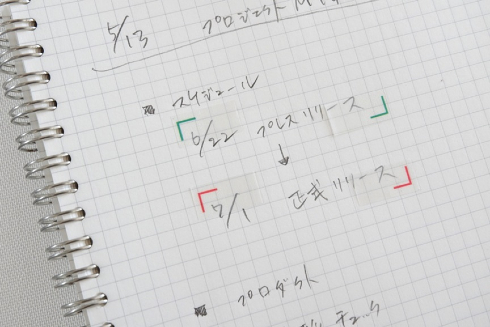 5/13 プロジェクト
スケジュール
6/22 プレスリリース
↓
7/1 正式リリース
プロダクト
チェック